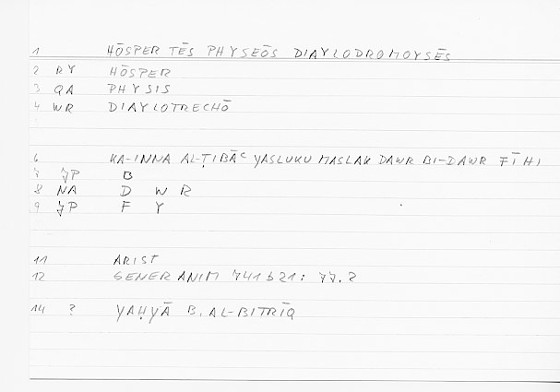 1 HŌSPER TĒS PHYSEŌS DIAYLODROMOYSĒS
2 RY HŌSPER
3 QA PHYSIS
4 WR DIAYLOTRECHŌ
6 KA-INNA AL-ṬIBĀC YASLUKU MASLAK DAWR BI-DAWR FĪHI
7 JP B
8 NA D W R
9 JP F Y
11 ARIST
12 GENER ANIM 741b21: 77.2
14 ? YAḤYĀ B. AL-BITRĪQ